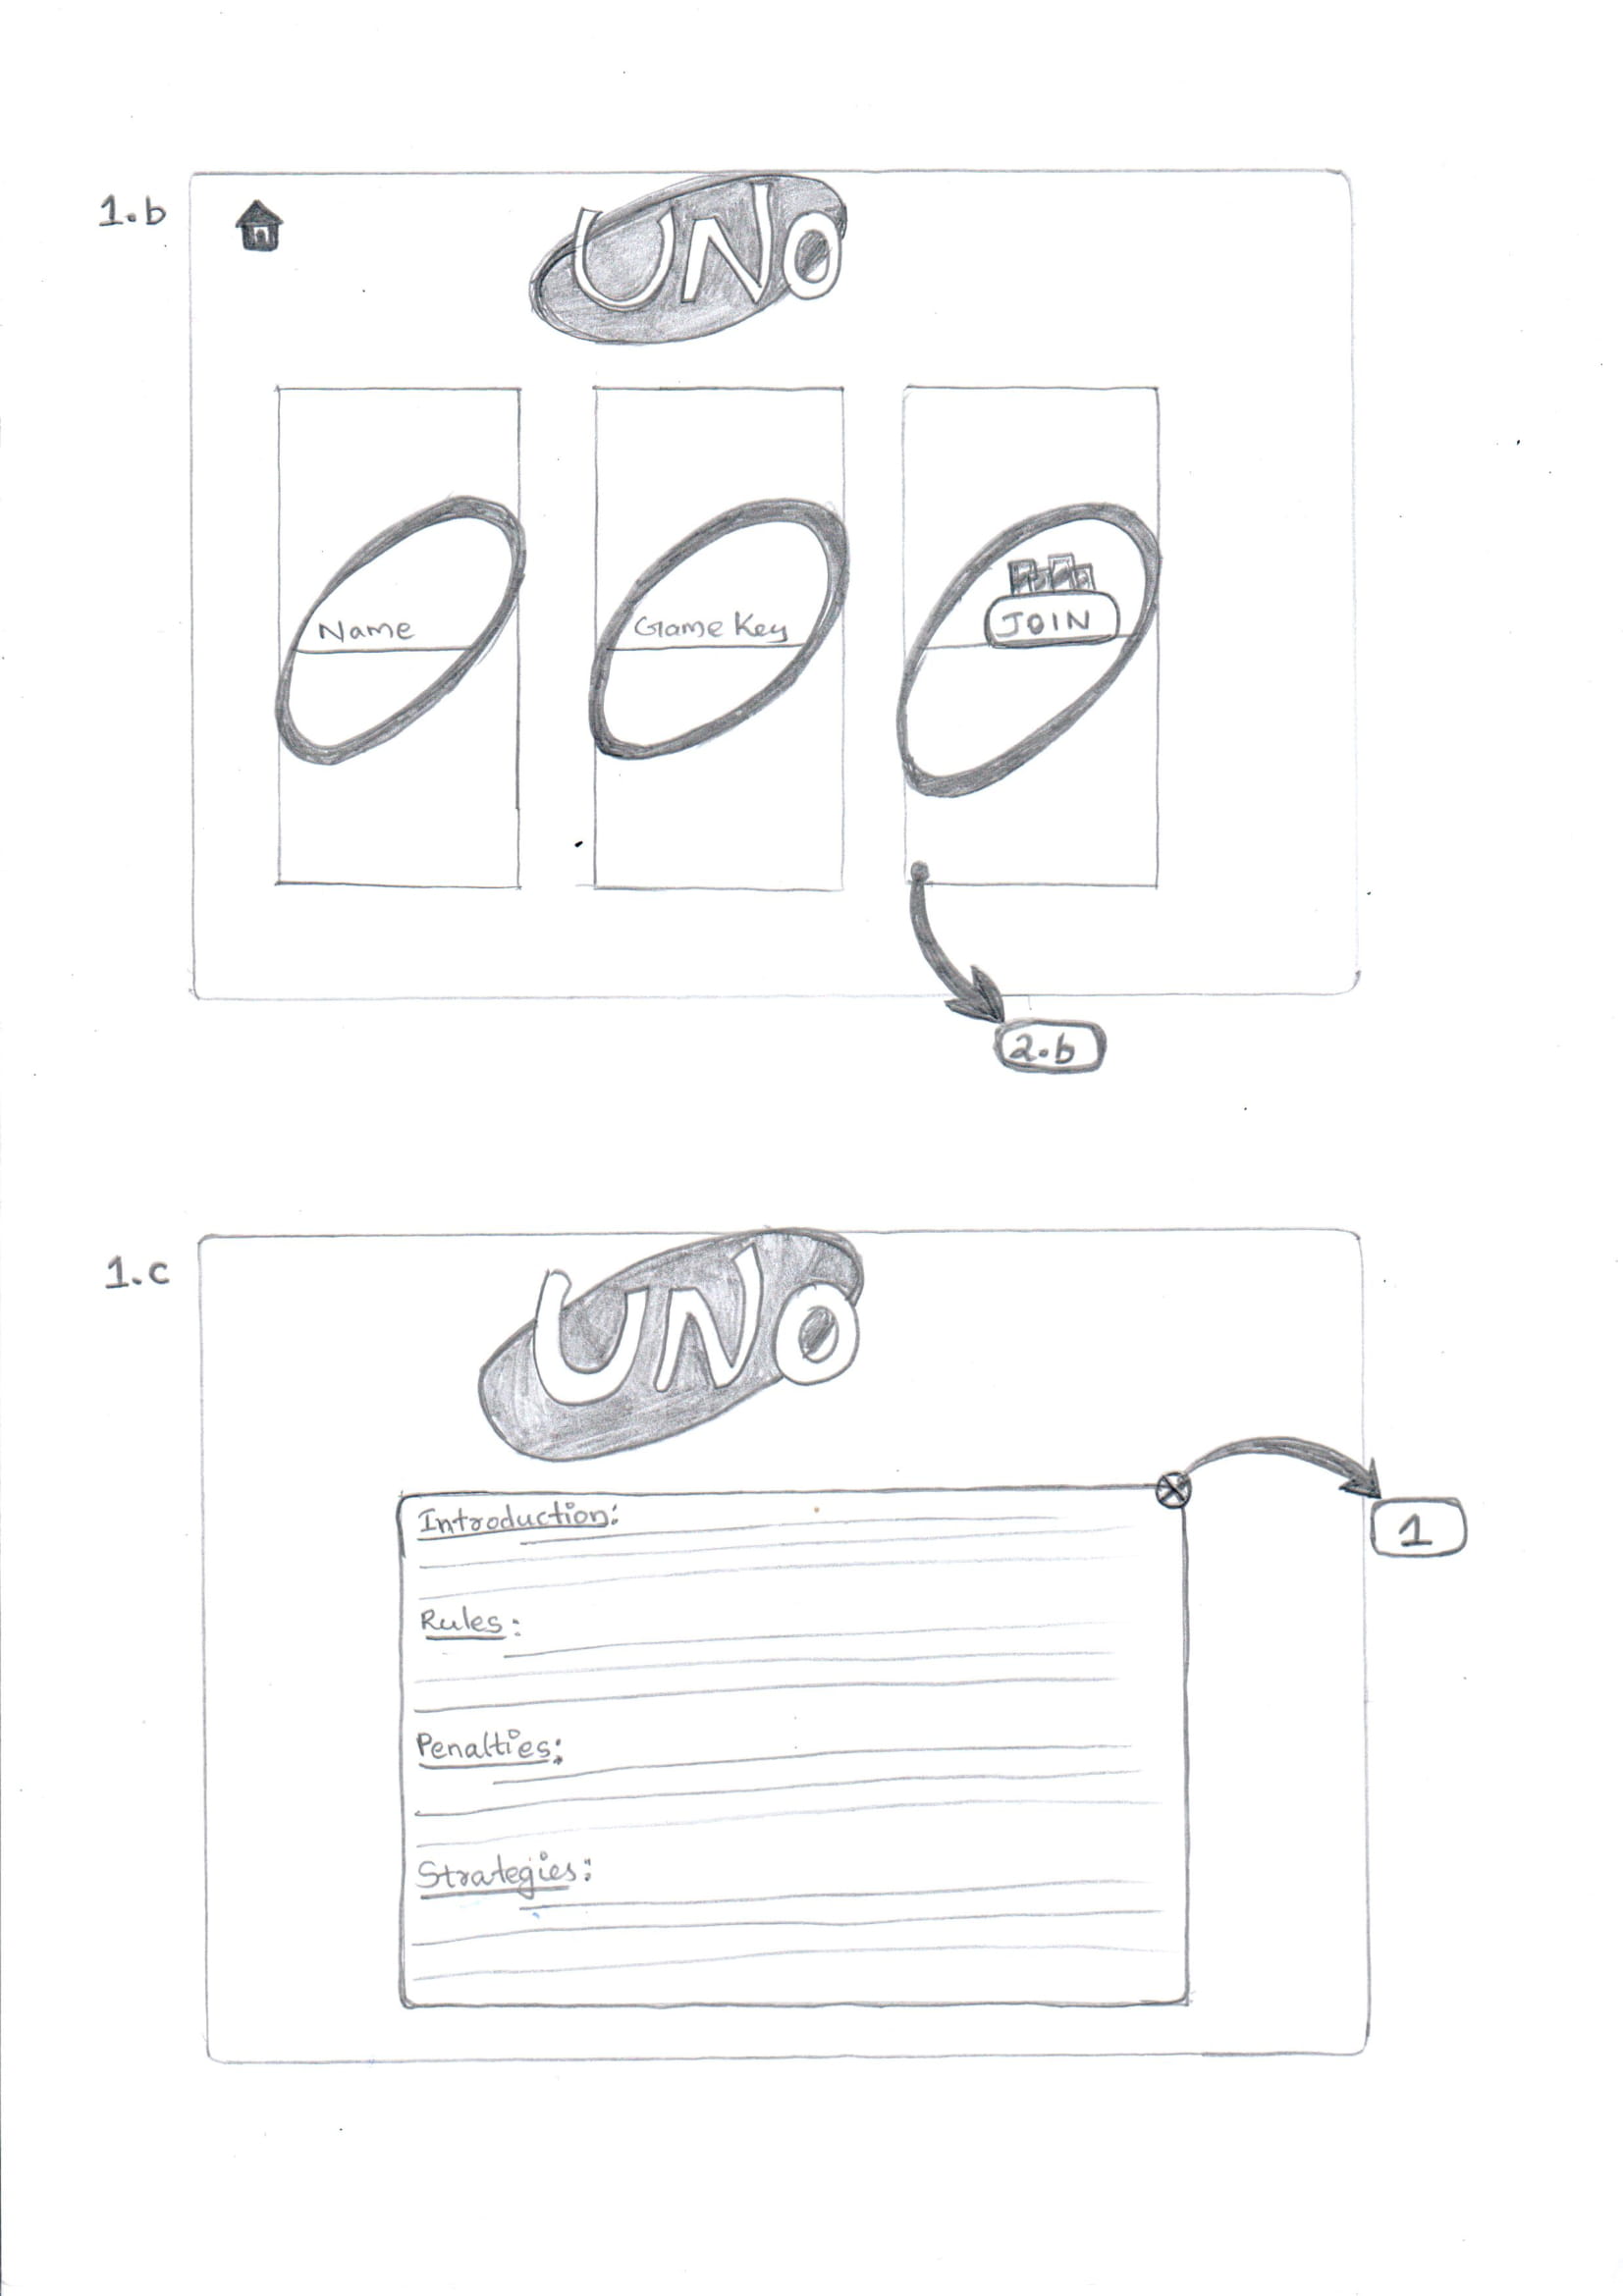 1.b
UNO
Name
Game Key
JOIN
2.b
1.c
UNO
Introduction:
1
Rules:
Penalties:
Strategies: